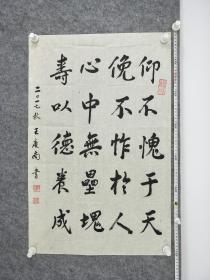 仰不愧于天
俛不怍於人
心中無壘塊
壽以德養成
二〇一七秋 王庚南書